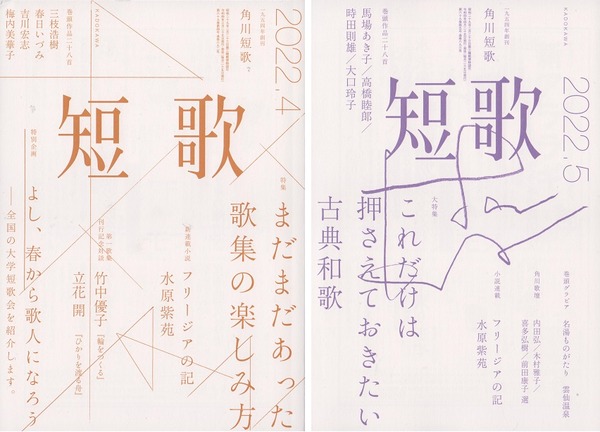 2022.4
KADOKAWA
一九五四年創刊
角川短歌
巻頭作品二十八首
三枝浩樹
春日いづみ
吉川宏志
梅内美華子
短歌
特集
まだまだあった
歌集の楽しみ方
新連載小説
フリージアの記
水原紫苑
第一歌集
刊行記念対談
竹中優子『輪をつくる』
立花開『ひかりを渡る舟』
特別企画
よし、春から歌人になろう
——全国の大学短歌会を紹介します。
2022.5
KADOKAWA
一九五四年創刊
角川短歌
巻頭作品二十八首
馬場あき子/高橋睦郎/
時田則雄/大口玲子
短歌
大特集
これだけは
押さえておきたい
古典和歌
巻頭グラビア
名湯ものがたり 雲仙温泉
角川歌壇
内田弘/木村雅子/
喜多弘樹/前田康子 選
小説連載
フリージアの記
水原紫苑